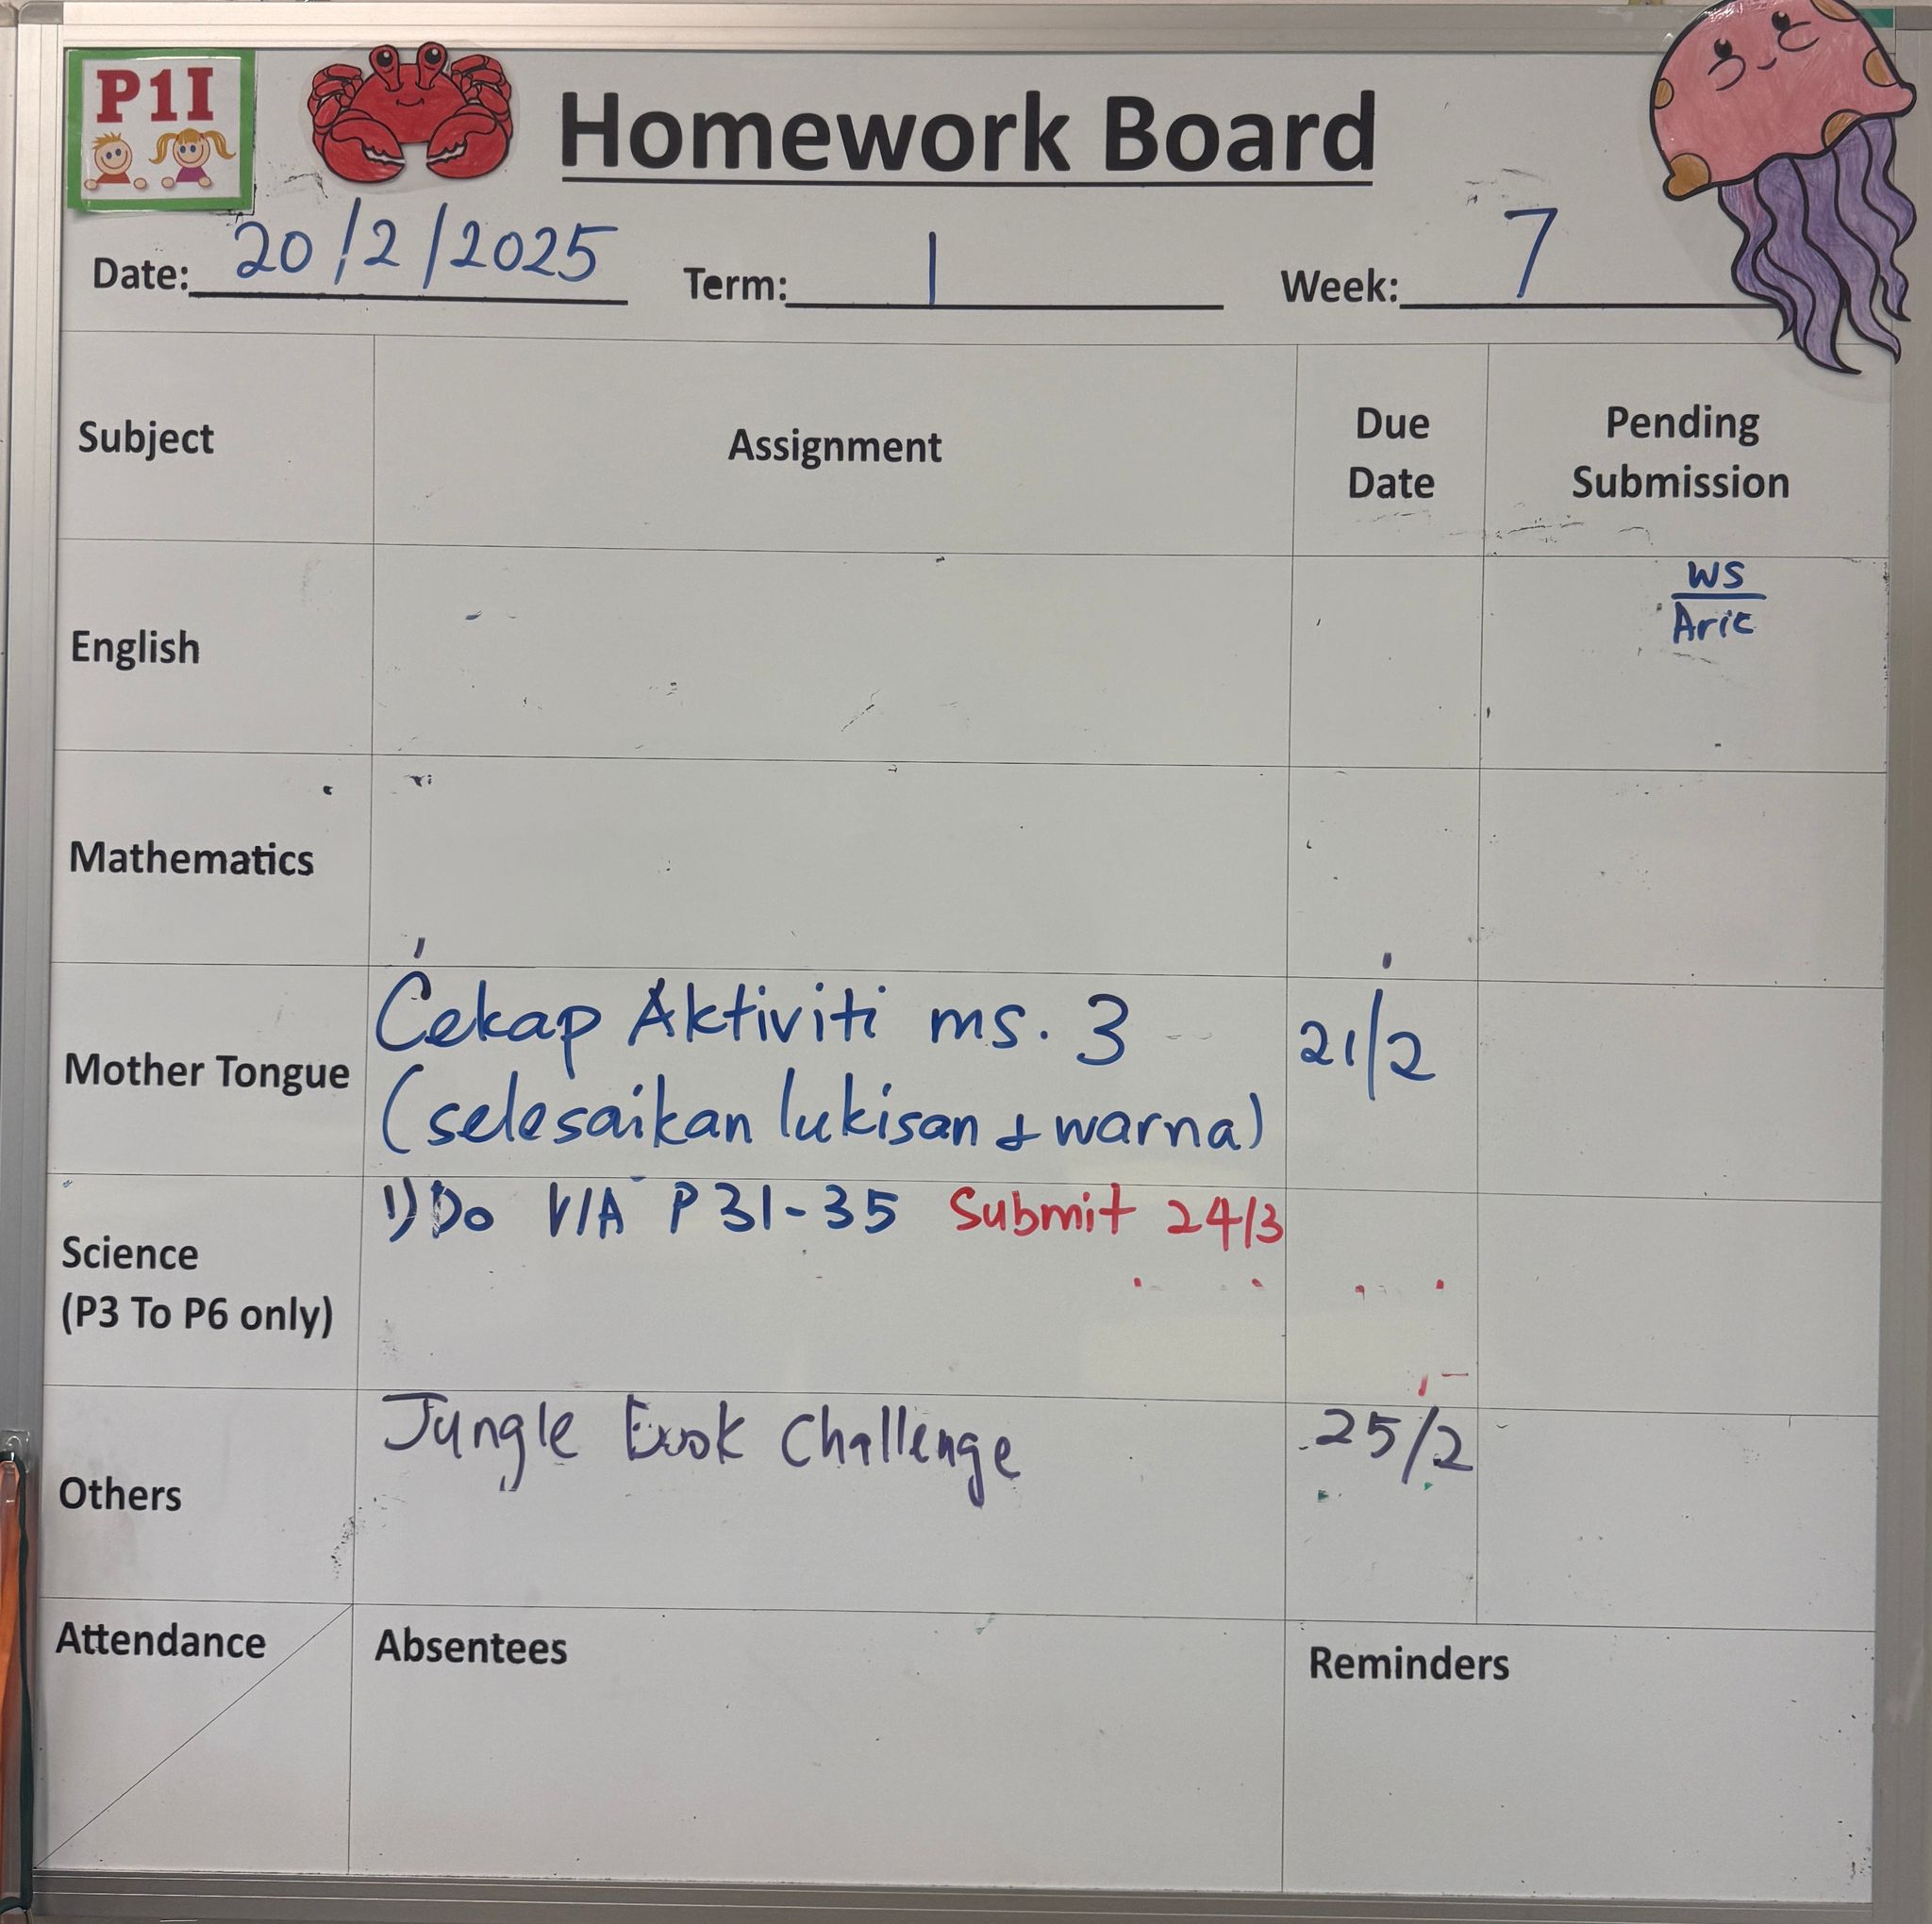 P1I
Homework Board
Date: 20/2/2025 Term: 1 Week: 7
Subject Assignment Due Date Pending Submission
English WS
Aric
Mathematics
Mother Tongue Cekap Aktiviti ms. 3 21/2
(selesaikan lukisan & warna)
Science 1) Do V/A P 31-35 Submit 24/3
(P3 To P6 only)
Others Jungle Book Challenge 25/2
Attendance Absentees Reminders